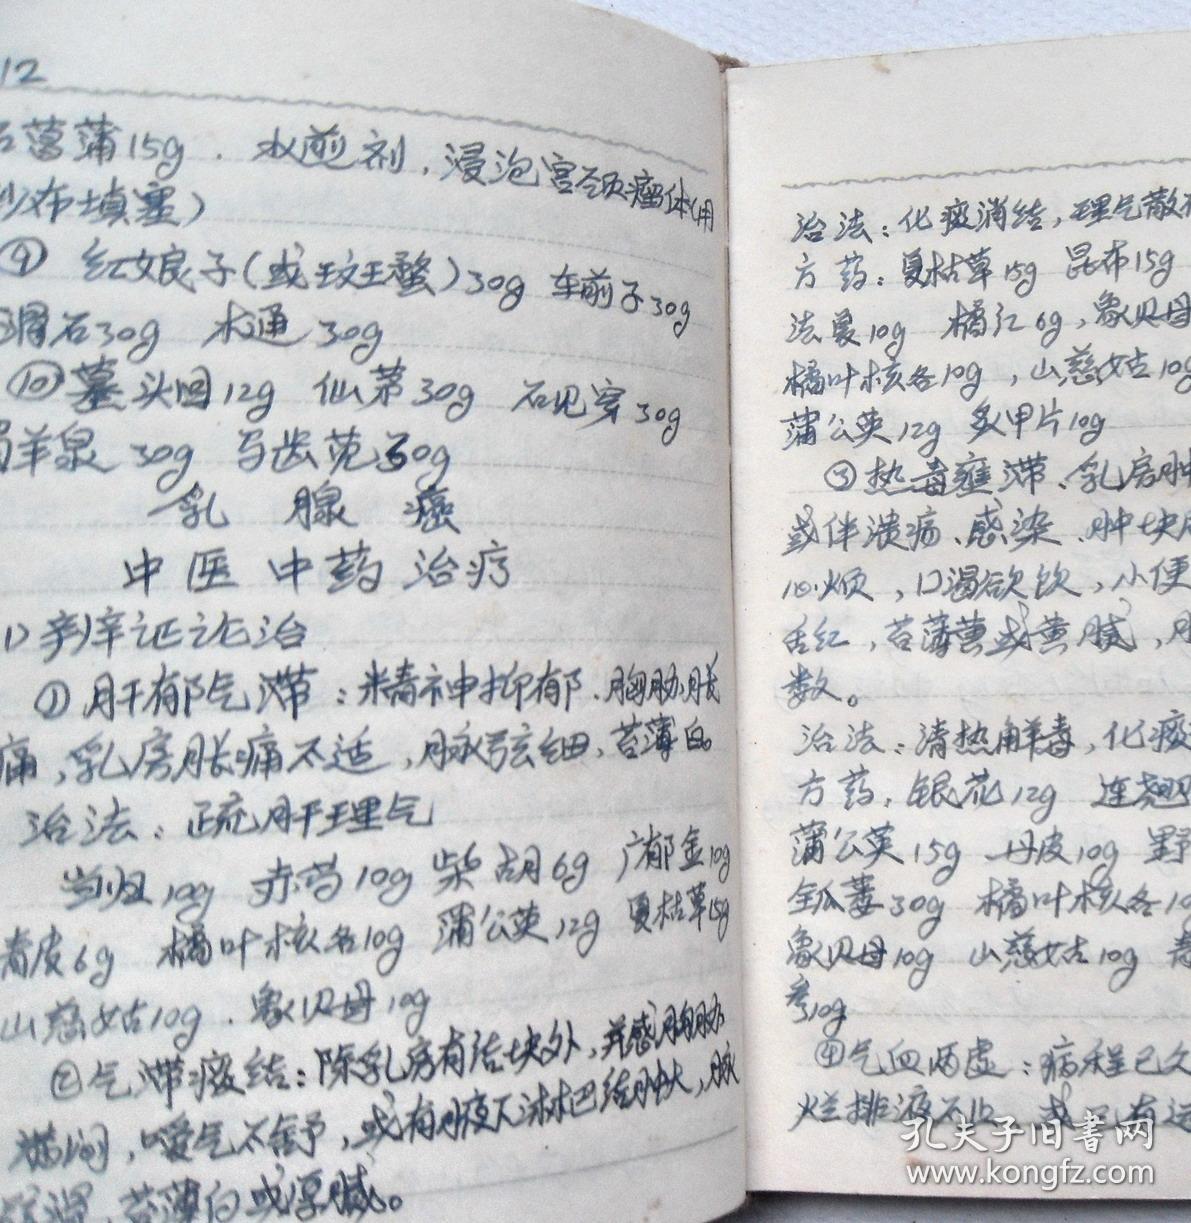 12
石菖蒲15g．水煎剂，浸泡宫颈瘤体（用
纱布填塞）
⑨ 红娘子（或斑蝥）30g 车前子30g
滑石30g 木通30g
⑩墓头回12g 仙茅30g 石见穿30g
羊泉30g 马齿苋30g
乳腺癌
中医中药治疗
1）辨证论治
①肝郁气滞：精神抑郁．胸胁胀
痛，乳房胀痛不适，脉弦细，苔薄白。
治法：疏肝理气
当归10g 赤芍10g 柴胡6g 广郁金10g
青皮6g 橘叶核各10g 蒲公英12g 夏枯草15g
山慈姑10g．象贝母10g
②气滞痰结：除乳房有结块外，并感胸胁
满闷，嗳气不舒，或有腋下淋巴结肿大，脉
滑，苔薄白或厚腻。
治法：化痰消结，理气散
方药：夏枯草15g 昆布15g
法夏10g 橘红6g，象贝母
橘叶核各10g，山慈姑10g
蒲公英12g 炙甲片10g
③热毒壅滞、乳房肿
或伴溃疡、感染、肿块
心烦，口渴欲饮，小便
舌红，苔薄黄或黄腻，
数。
治法：清热解毒，化痰
方药，银花12g 连翘
蒲公英15g 丹皮10g 野
全瓜蒌30g 橘叶核各10
象贝母10g 山慈姑10g 青
参10g
④气血两虚：病程已久
烂排液不止，或已有远
孔夫子旧书网
www.kongfz.com